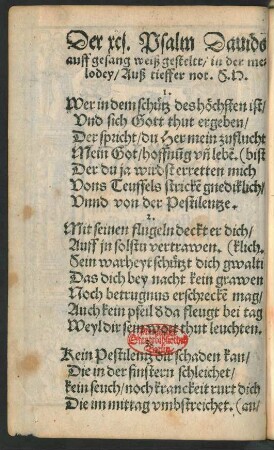 Der xcj. Psalm Dauids
auff gesang weiß gestelt/ in der me-
lodey/ Auß tieffer not. S.H.
1.
Wer in dem schütz des höchsten ist/
Vnd sich Gott thut ergeben/
Der spricht/ du Her mein zuflucht
Mein Got/ hoffnũg vñ lebē. (bist
Der du ja wirdst erretten mich
Vons Teuffels stricke gnediklich/
Vnnd von der Pestilentze.
2.
Mit seinen flugeln deckt er dich/
Auff jn solstu vertrawen. (klich.
Sein warheyt schützt dich gwalti
Das dich bey nacht kein grawen
Noch betrugnus erschreckē mag/
Auch kein pfeil d da fleugt bei tag
Weyl dir sein wort thut leuchten.
Kein Pestilentz dir schaden kan/
Die in der finstern schleichet/
kein seuch/ noch kranckeit rurt dich
Die im mittag vmbstreichet. (an/